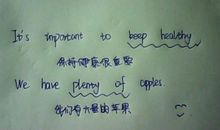 It's important to keep healthy
保持健康很重要
We have plenty of apples.
我们有大量的苹果